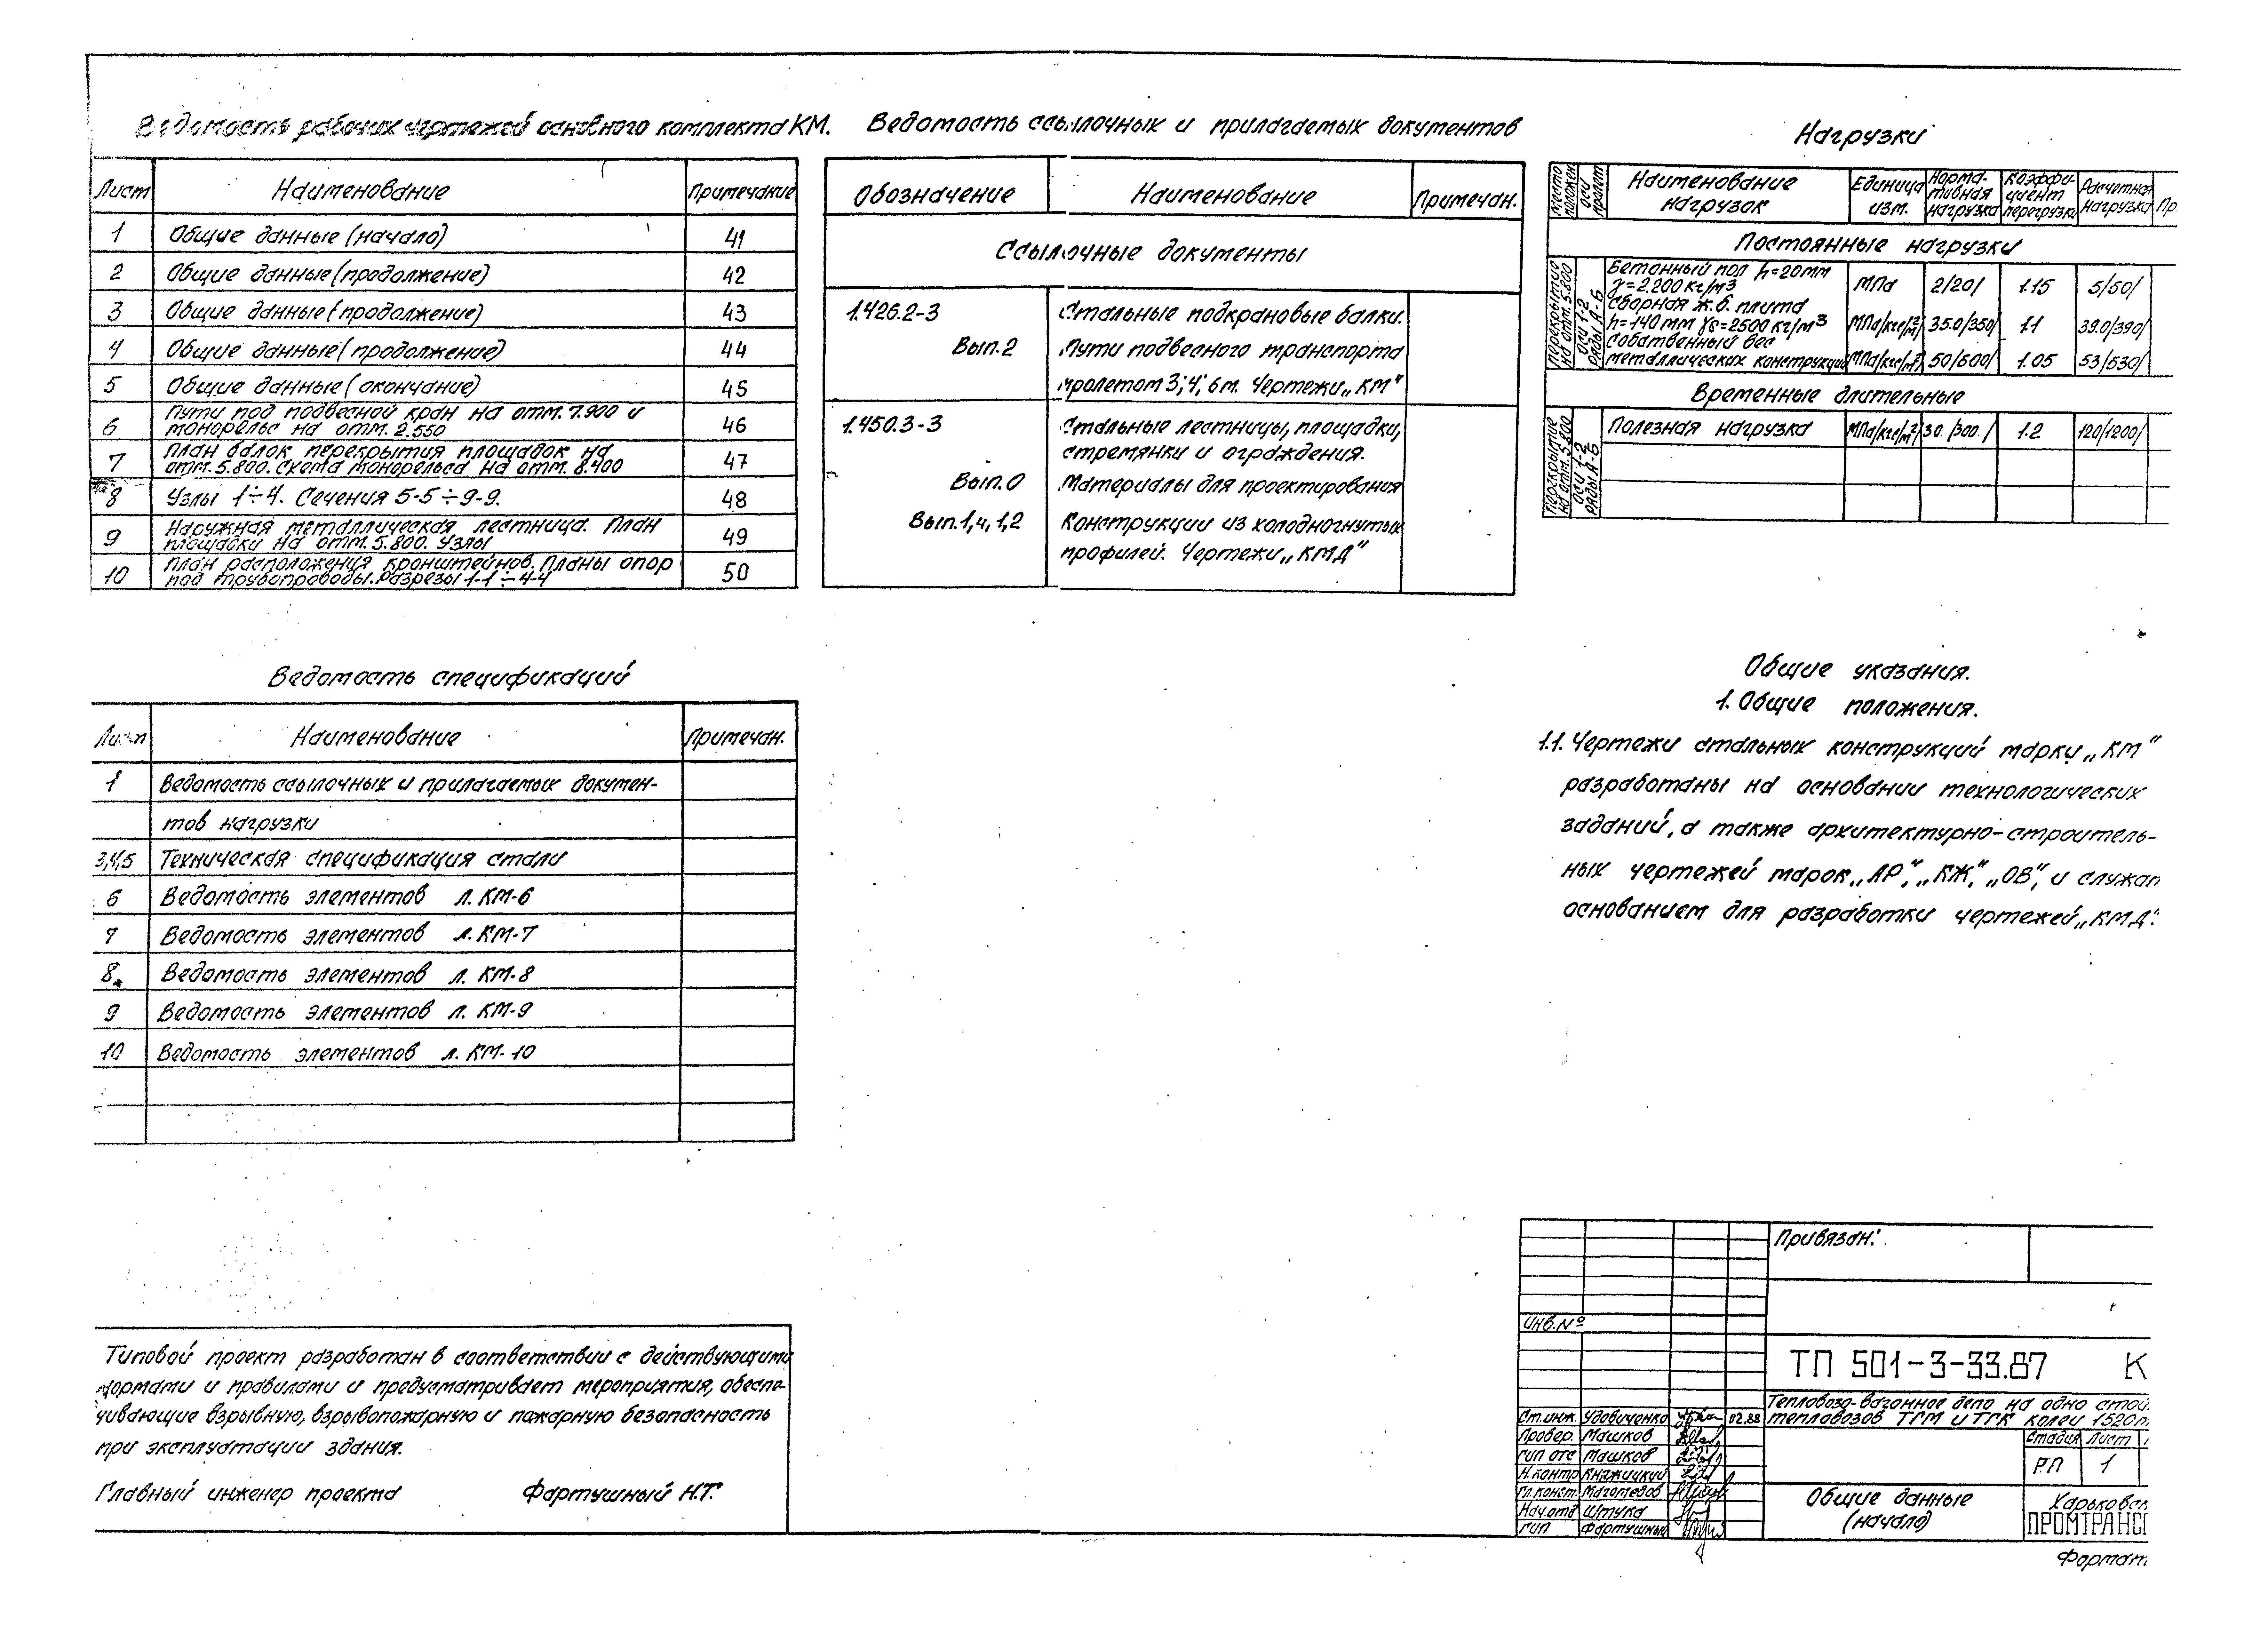 Ведомость рабочих чертежей основного комплекта КМ.
Лист Наименование Примечание
1 Общие данные (начало) 41
2 Общие данные (продолжение) 42
3 Общие данные (продолжение) 43
4 Общие данные (продолжение) 44
5 Общие данные (окончание) 45
6 Пути под подвесной кран на отм. 7.900 и
монорельс на отм. 2.550 46
7 План балок перекрытия площадок на
отм. 5.800. Схема монорельса на отм. 8.400 47
8 Узлы 1÷4. Сечения 5-5÷9-9. 48
9 Наружная металлическая лестница. План
площадки на отм. 5.800. Узлы 49
10 План расположения кронштейнов. Планы опор
под трубопроводы. Разрезы 1-1÷4-4 50
Ведомость ссылочных и прилагаемых документов
Обозначение Наименование Примечан.
Ссылочные документы
1.426.2-3 Стальные подкрановые балки.
Вып.2 Пути подвесного транспорта
пролетом 3; 4; 6м. Чертежи „КМ"
1.450.3-3 Стальные лестницы, площадки,
стремянки и ограждения.
Вып.0 Материалы для проектирования
Вып.1,4,1,2 Конструкции из холодногнутых
профилей. Чертежи „КМД"
Нагрузки
Место положен оси пролет Наименование нагрузок Единица изм. Норма-тивная нагрузка Коэффи-циент перегрузки Расчетная нагрузка Пр.
Постоянные нагрузки
Перекрытие на отм. 5.800 оси 1-2 ряды А-Б
Бетонный пол h=20мм
γ=2200 кг/м3 МПа 2/20/ 1.15 5/50/
Сборная ж.б. плита
h=140мм γδ=2500 кг/м3 МПа/кгс/м2/ 35.0/350/ 1.1 39.0/390/
Собственный вес
металлических конструкций МПа/кгс/м2/ 50/500/ 1.05 53/530/
Временные длительные
Перекрытие на отм. 5.800 оси 1-2 ряды А-Б
Полезная нагрузка МПа/кгс/м2/ 30./300./ 1.2 120/1200/
Ведомость спецификаций
Лист Наименование Примечан.
1 Ведомость ссылочных и прилагаемых докумен-
тов нагрузки
3,4,5 Техническая спецификация стали
6 Ведомость элементов л. КМ-6
7 Ведомость элементов л. КМ-7
8 Ведомость элементов л. КМ-8
9 Ведомость элементов л. КМ-9
10 Ведомость элементов л. КМ-10
Общие указания.
1. Общие положения.
1.1. Чертежи стальных конструкций марки „КМ"
разработаны на основании технологических
заданий, а также архитектурно-строитель-
ных чертежей марок „АР", „КЖ", „ОВ", и служат
основанием для разработки чертежей „КМД".
Типовой проект разработан в соответствии с действующими
нормами и правилами и предусматривает мероприятия, обеспе-
чивающие взрывную, взрывопожарную и пожарную безопасность
при эксплуатации здания.
Главный инженер проекта Фартушный Н.Т.
Привязан:
Инв.№
ТП 501-3-33.87 К
Тепловозо-вагонное депо на одно стой
тепловозов ТГМ и ТГК колеи 1520м
Ст.инж. Удовиченко 02.88
Провер. Машков
ГИП отс Машков
Н.контр Княжицкий
Гл.конст. Магомедов
Нач.отд Штука
ГИП Фартушный
Стадия Лист
РП 1
Общие данные
(начало)
Харьковск
ПРОМТРАНС
Формат